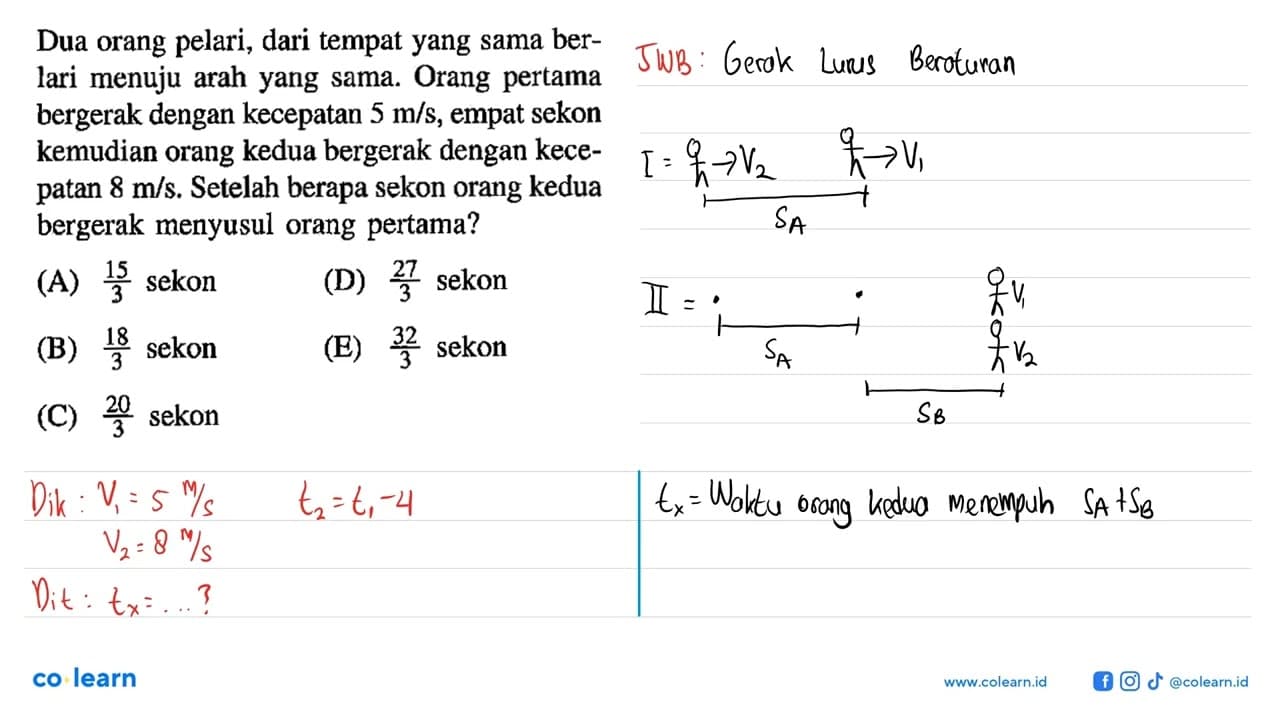 Dua orang pelari, dari tempat yang sama ber-
lari menuju arah yang sama. Orang pertama
bergerak dengan kecepatan 5 m/s, empat sekon
kemudian orang kedua bergerak dengan kece-
patan 8 m/s. Setelah berapa sekon orang kedua
bergerak menyusul orang pertama?
(A) 15/3 sekon
(B) 18/3 sekon
(C) 20/3 sekon
(D) 27/3 sekon
(E) 32/3 sekon
JWB : Gerak Lurus Beraturan
I = → V₂ → V₁
S_A
II = V₁
S_A V₂
S_B
Dik : V₁ = 5 m/s t₂ = t₁ - 4
V₂ = 8 m/s
Dit : t_x = ...?
t_x = Waktu orang kedua menempuh S_A + S_B
co learn
www.colearn.id
@colearn.id